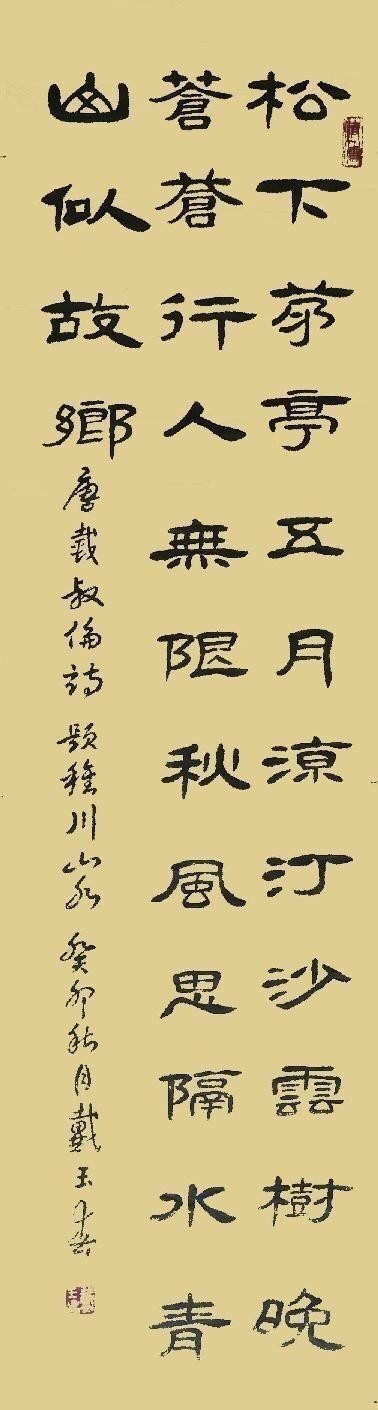 松下茅亭五月涼汀沙雲樹晚
蒼蒼行人無限秋風思隔水青
山似故鄉
唐戴叔倫詩 題稚川山水 癸卯秋月戴玉